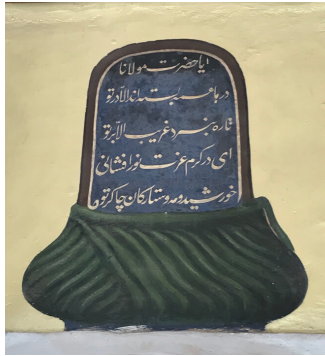 یا حضرت مولانا
درها همه بسته‌اند الا در تو
تا ره نبرد غریب الا بر تو
ای در کرم عزت نور افشانی
خورشید و مه و ستارگان چاکر تو